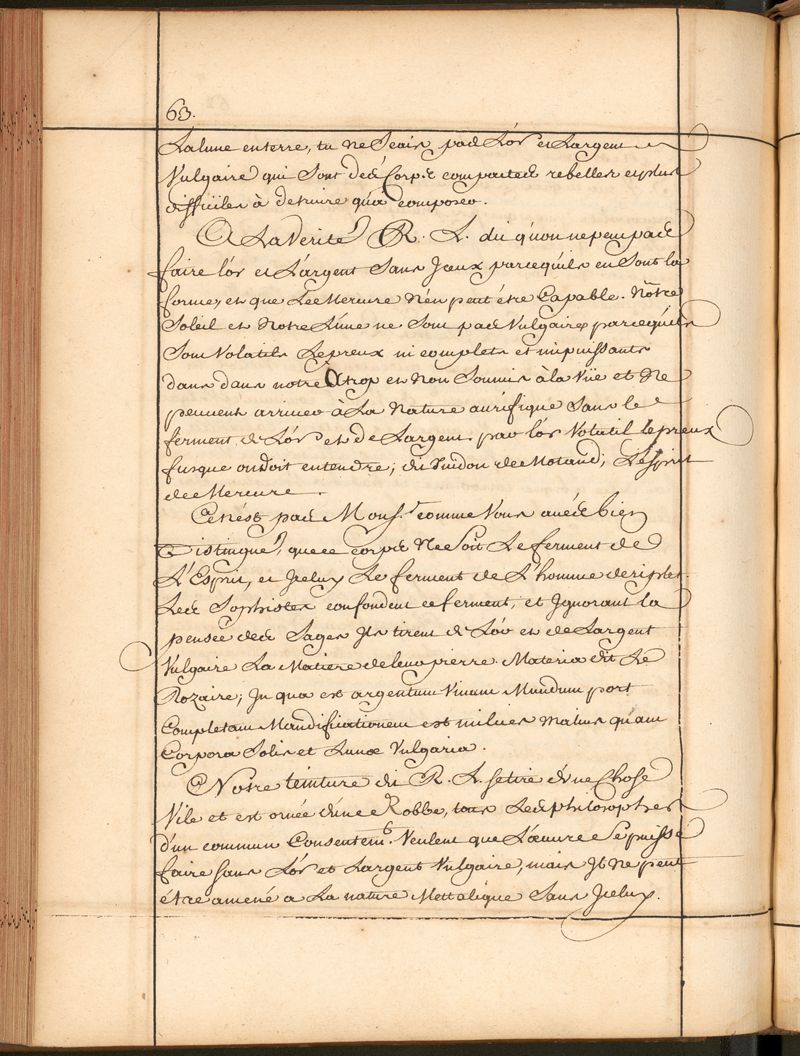 63.
La lune en terre, tu ne scais pas L'or et L'argent
Vulgaire qui sont des Corps compactes rebelles et plus
difficiles à detruire qu'a composer.
A La Verité R. L. dit qu'on ne peut pas
faire l'or et L'argent Sans Iceux parcequ'ils en sont la
forme, et que Le Mercure n'en peut étre Capable. Nôtre
Soleil et Notre Lune ne Sont pas Vulgaires parcequ'ils
Sont Volatils Lepreux ni complets et impuissants
dans dans notre et non Soumis à la Vüe et Ne
peuvent arriver à La Nature aurifique Sans le
ferment de L'or et de L'argent. par l'or Volatil lepreux
fusque on doit entendre, dit Guidon de Motand; L'esprit
de Mercure.
Ce n'est pas Mons.r comme Vous avés bien
Distingué, que ce corps Ne Soit Le ferment de
L'Esprit, et Iceluy Le ferment de L'homme de riplet.
Les Sophistes confondent ce ferment, et Ignorant la
pensée des Sages Ils tirent de L'or et de L'argent
Vulgaire La Matiere de leur pierre. Materia dit Le
Rozaire; In qua est argentum Vivum Mundum port
Completam Mundificationem est milies Malius quam
Corpora Solis et Lunæ Vulgaria.
Notre teinture dit R. L. se tire d'une Chose
Vile et est ornée d'une Robbe, tous Les philosophes
d'un commun Consentem.t Veulent que L'œuvre se puisse
faire sans L'or et L'argent Vulgaire, mais Il ne peut
étre amené a La nature Mettalique Sans Iceluy.